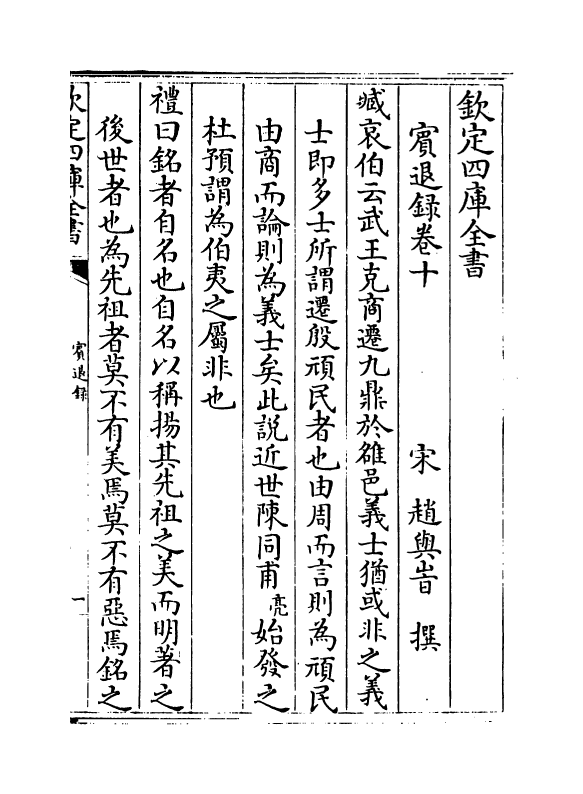 欽定四庫全書
賓退録卷十
宋 趙與旹 撰
臧哀伯云武王克商遷九鼎於雒邑義士猶或非之義
士即多士所謂遷殷頑民者也由周而言則為頑民
由商而論則為義士矣此説近世陳同甫亮始發之
杜預謂為伯夷之屬非也
禮曰銘者自名也自名以稱揚其先祖之美而明著之
後世者也為先祖者莫不有美焉莫不有惡焉銘之
欽定四庫全書
賓退録
一